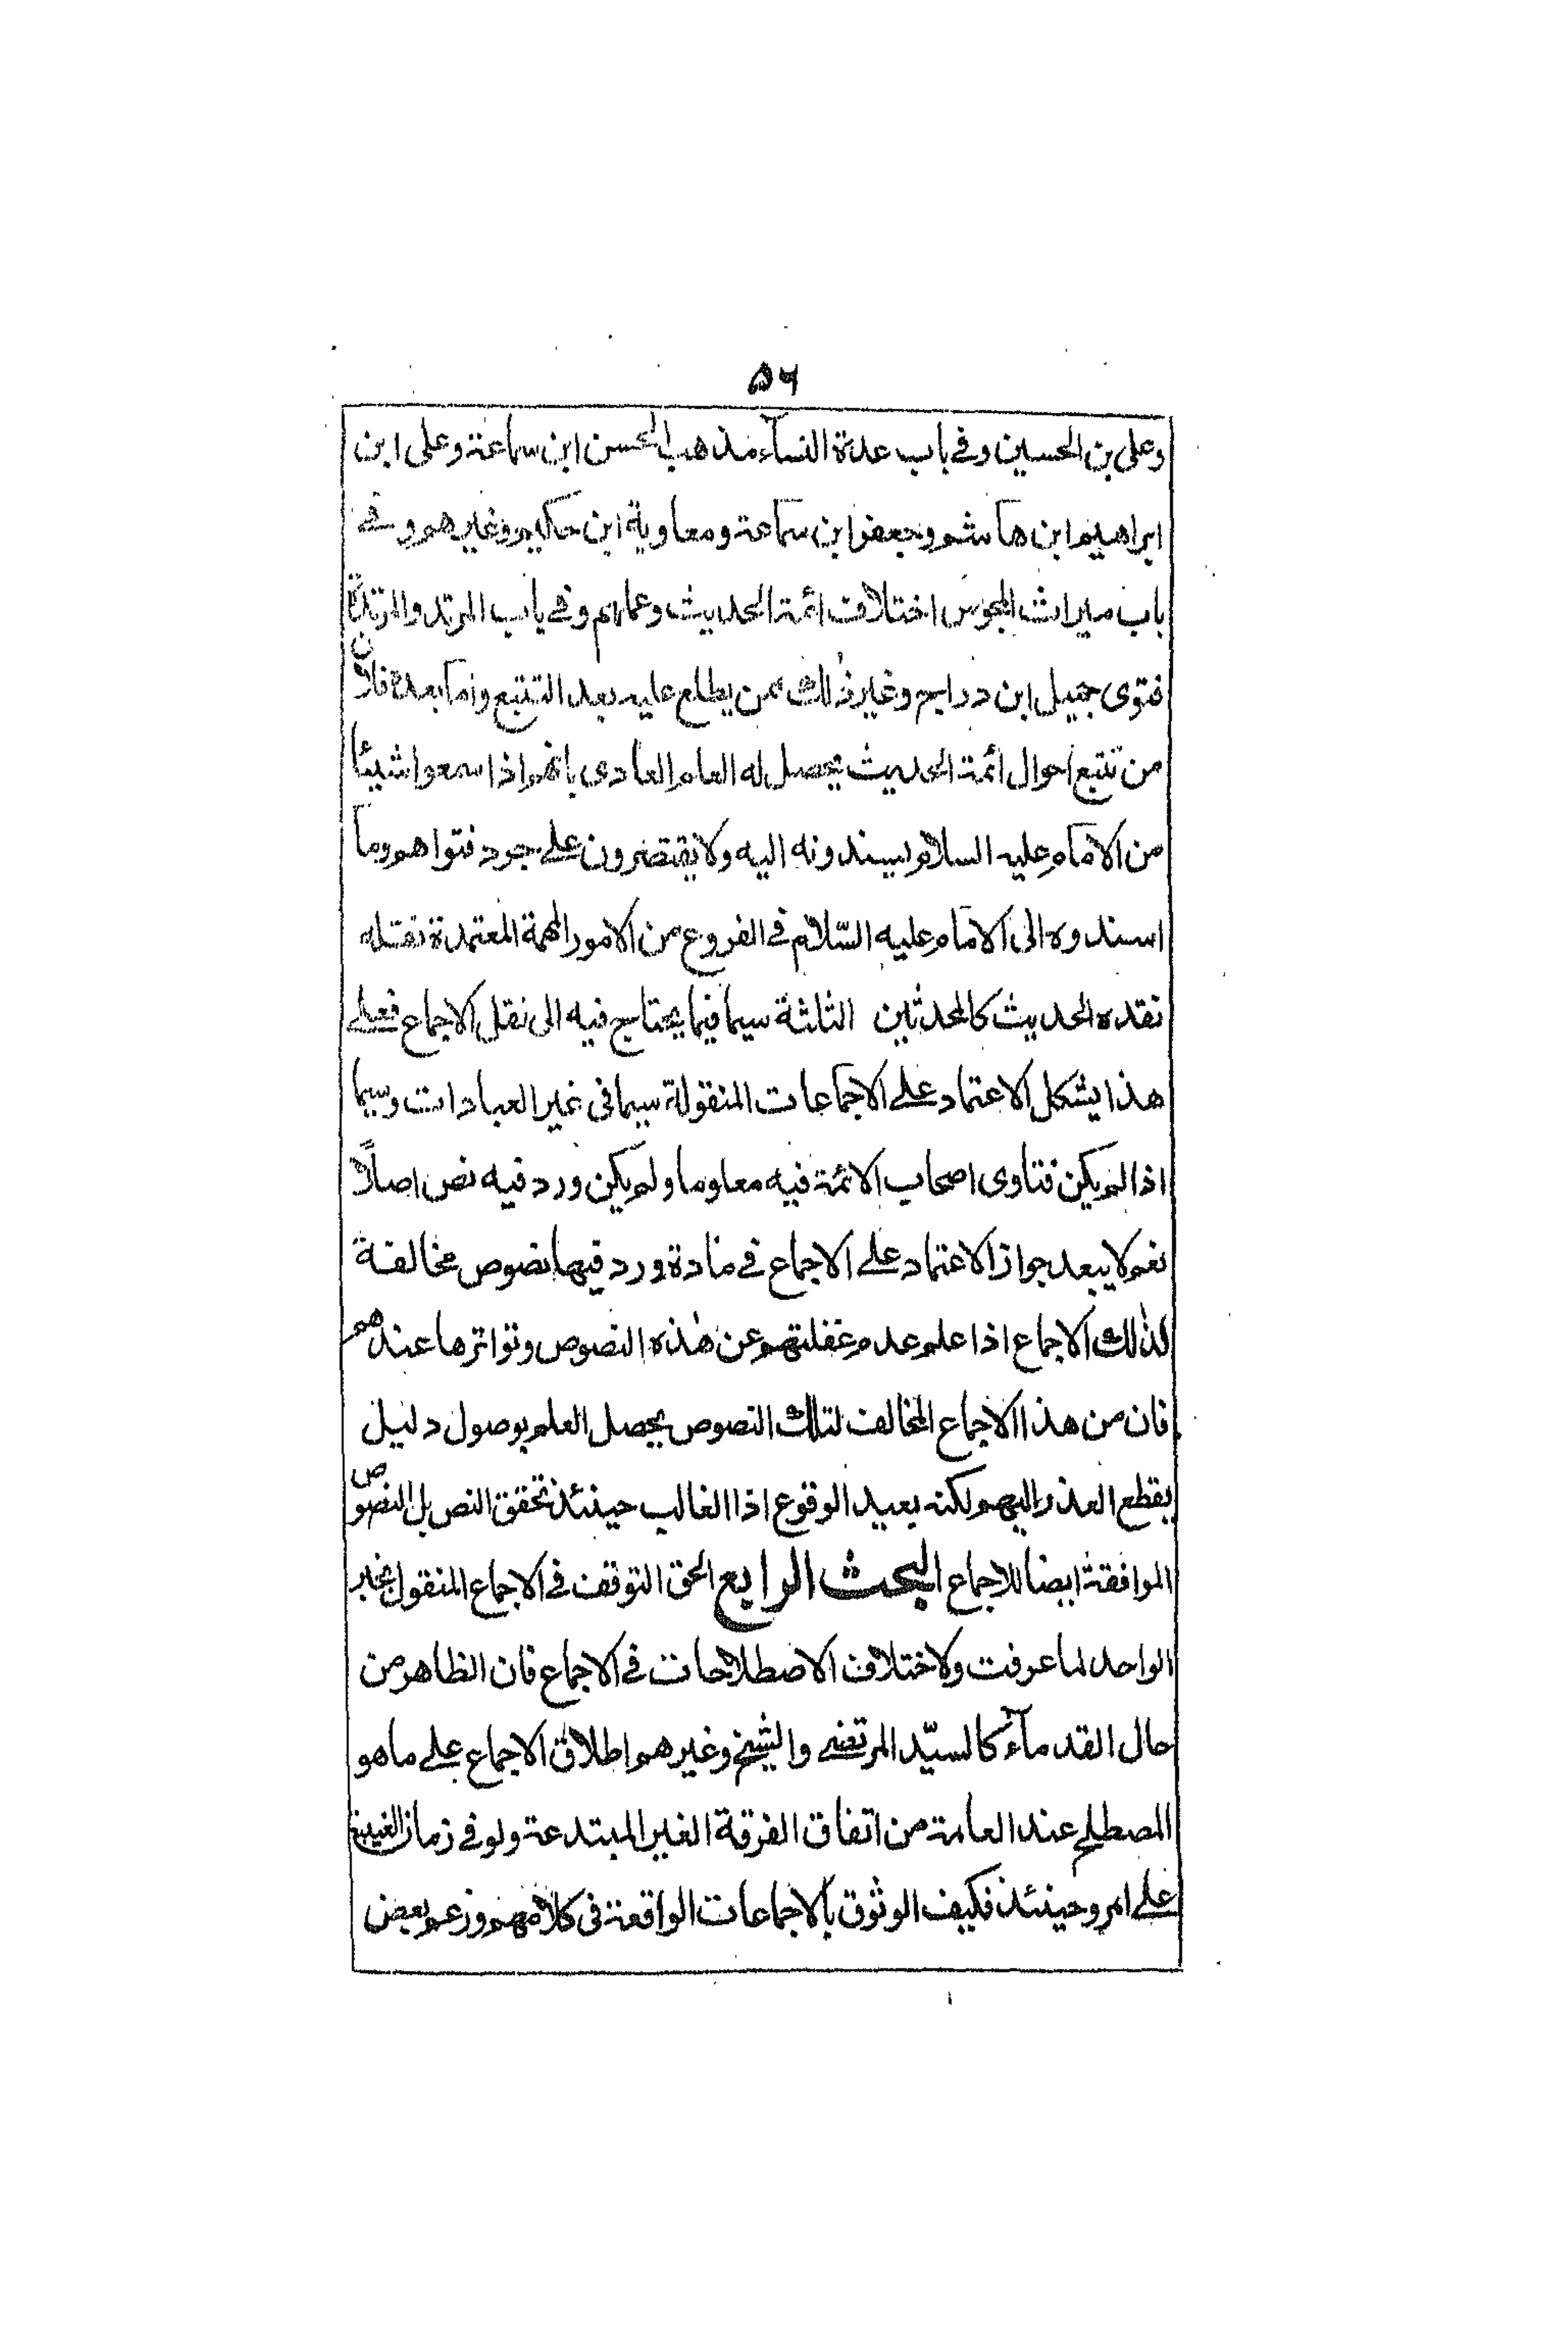 ۵۶
وعلى بن الحسين وفي باب عدة النسآء مذهب الحسن ابن سماعة وعلى ابن
ابراهيم ابن هآشم وجعفر ابن سمآعة ومعاوية ابن حكيم وغيرهم وفي
باب ميراث المجوس اختلاف ائمة الحديث وعملهم وفي باب المرتد والمرتدة
فتوى جميل ابن دراج وغير ذلك ممن يطلع عليه بعد التتبع وامآ بعده فلان
من تتبع احوال ائمة الحديث يحصل له العلم العادى بانهم اذا سمعوا شيئا
من الامآم عليه السلام يسندونه اليه ولا يقتصرون على مجرد فتواهم ومآ
اسندوه الى الامآم عليه السّلام في الفروع من الامور المهمة المعتمدة نقله
نقده الحديث كالمحدثين الثلثة سيما فيما يحتاج فيه الى نقل الاجماع فعلى
هذا يشكل الاعتماد على الاجمآعات المنقولة سيما فى غير العبادات وسيما
اذا لم يكن فتاوى اصحاب الائمة فيه معلوما ولم يكن ورد فيه نص اصلاً
نعم لا يبعد جواز الاعتماد على الاجماع في مادة ورد فيها نصوص مخالفة
لذلك الاجماع اذا علم عدم غفلتهم عن هذه النصوص وتواترها عندهم
فان من هذا الاجماع المخالف لتلك النصوص يحصل العلم بوصول دليل
يقطع العذر اليهم ولكنه بعيد الوقوع اذ الغالب حينئذ تحقق النص بل النصوص
الموافقة ايضا للاجماع البحث الرابع الحق التوقف في الاجماع المنقول بخبر
الواحد لما عرفت ولاختلاف الاصطلاحات في الاجماع فان الظاهر من
حال القدمآء كالسيّد المرتضى والشيخ وغيرهم اطلاق الاجماع على ما هو
المصطلح عند العامة من اتفاق الفرقة الغير المبتدعة ولو في زمان الغيبة
على امر وحينئذ فكيف الوثوق بالاجماعات الواقعة فى كلامهم وزعم بعض